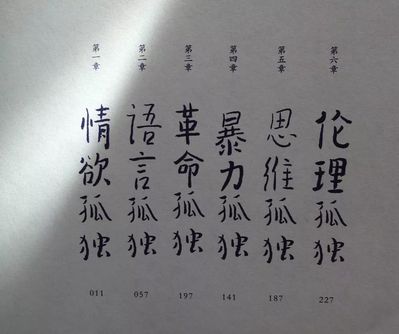 第一章
情欲孤独
011
第二章
语言孤独
057
第三章
革命孤独
197
第四章
暴力孤独
141
第五章
思维孤独
187
第六章
伦理孤独
227